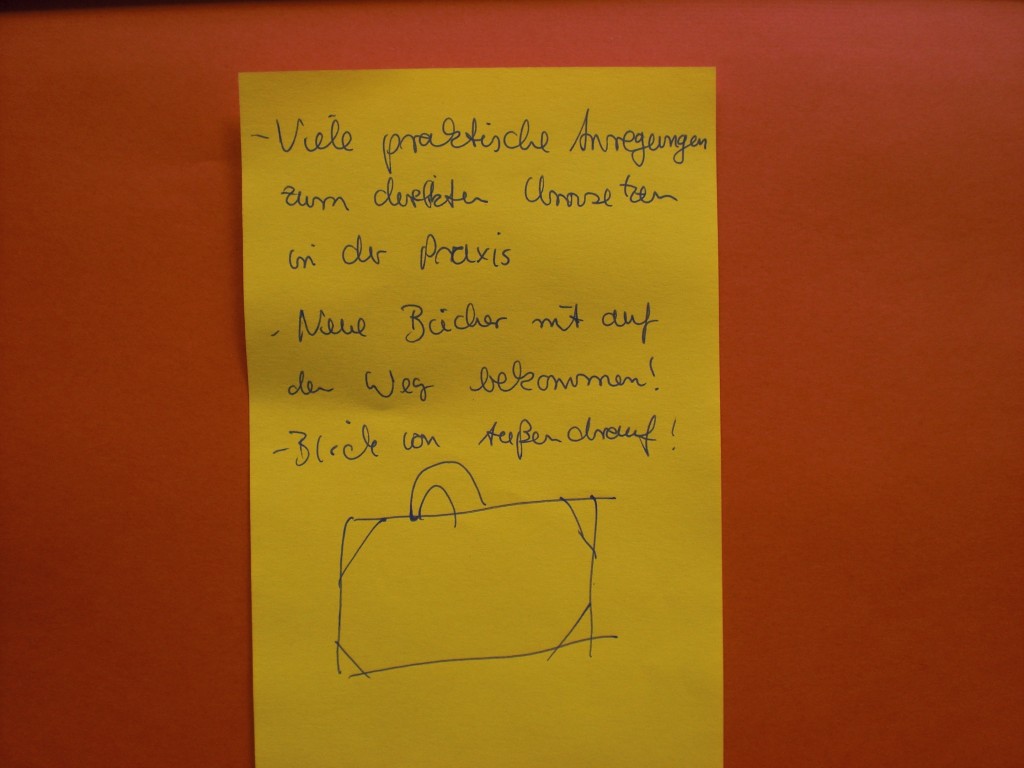 - Viele praktische Anregungen
zum direkten Umsetzen
in der Praxis
- Neue Bücher mit auf
den Weg bekommen!
- Blick von Außen drauf!